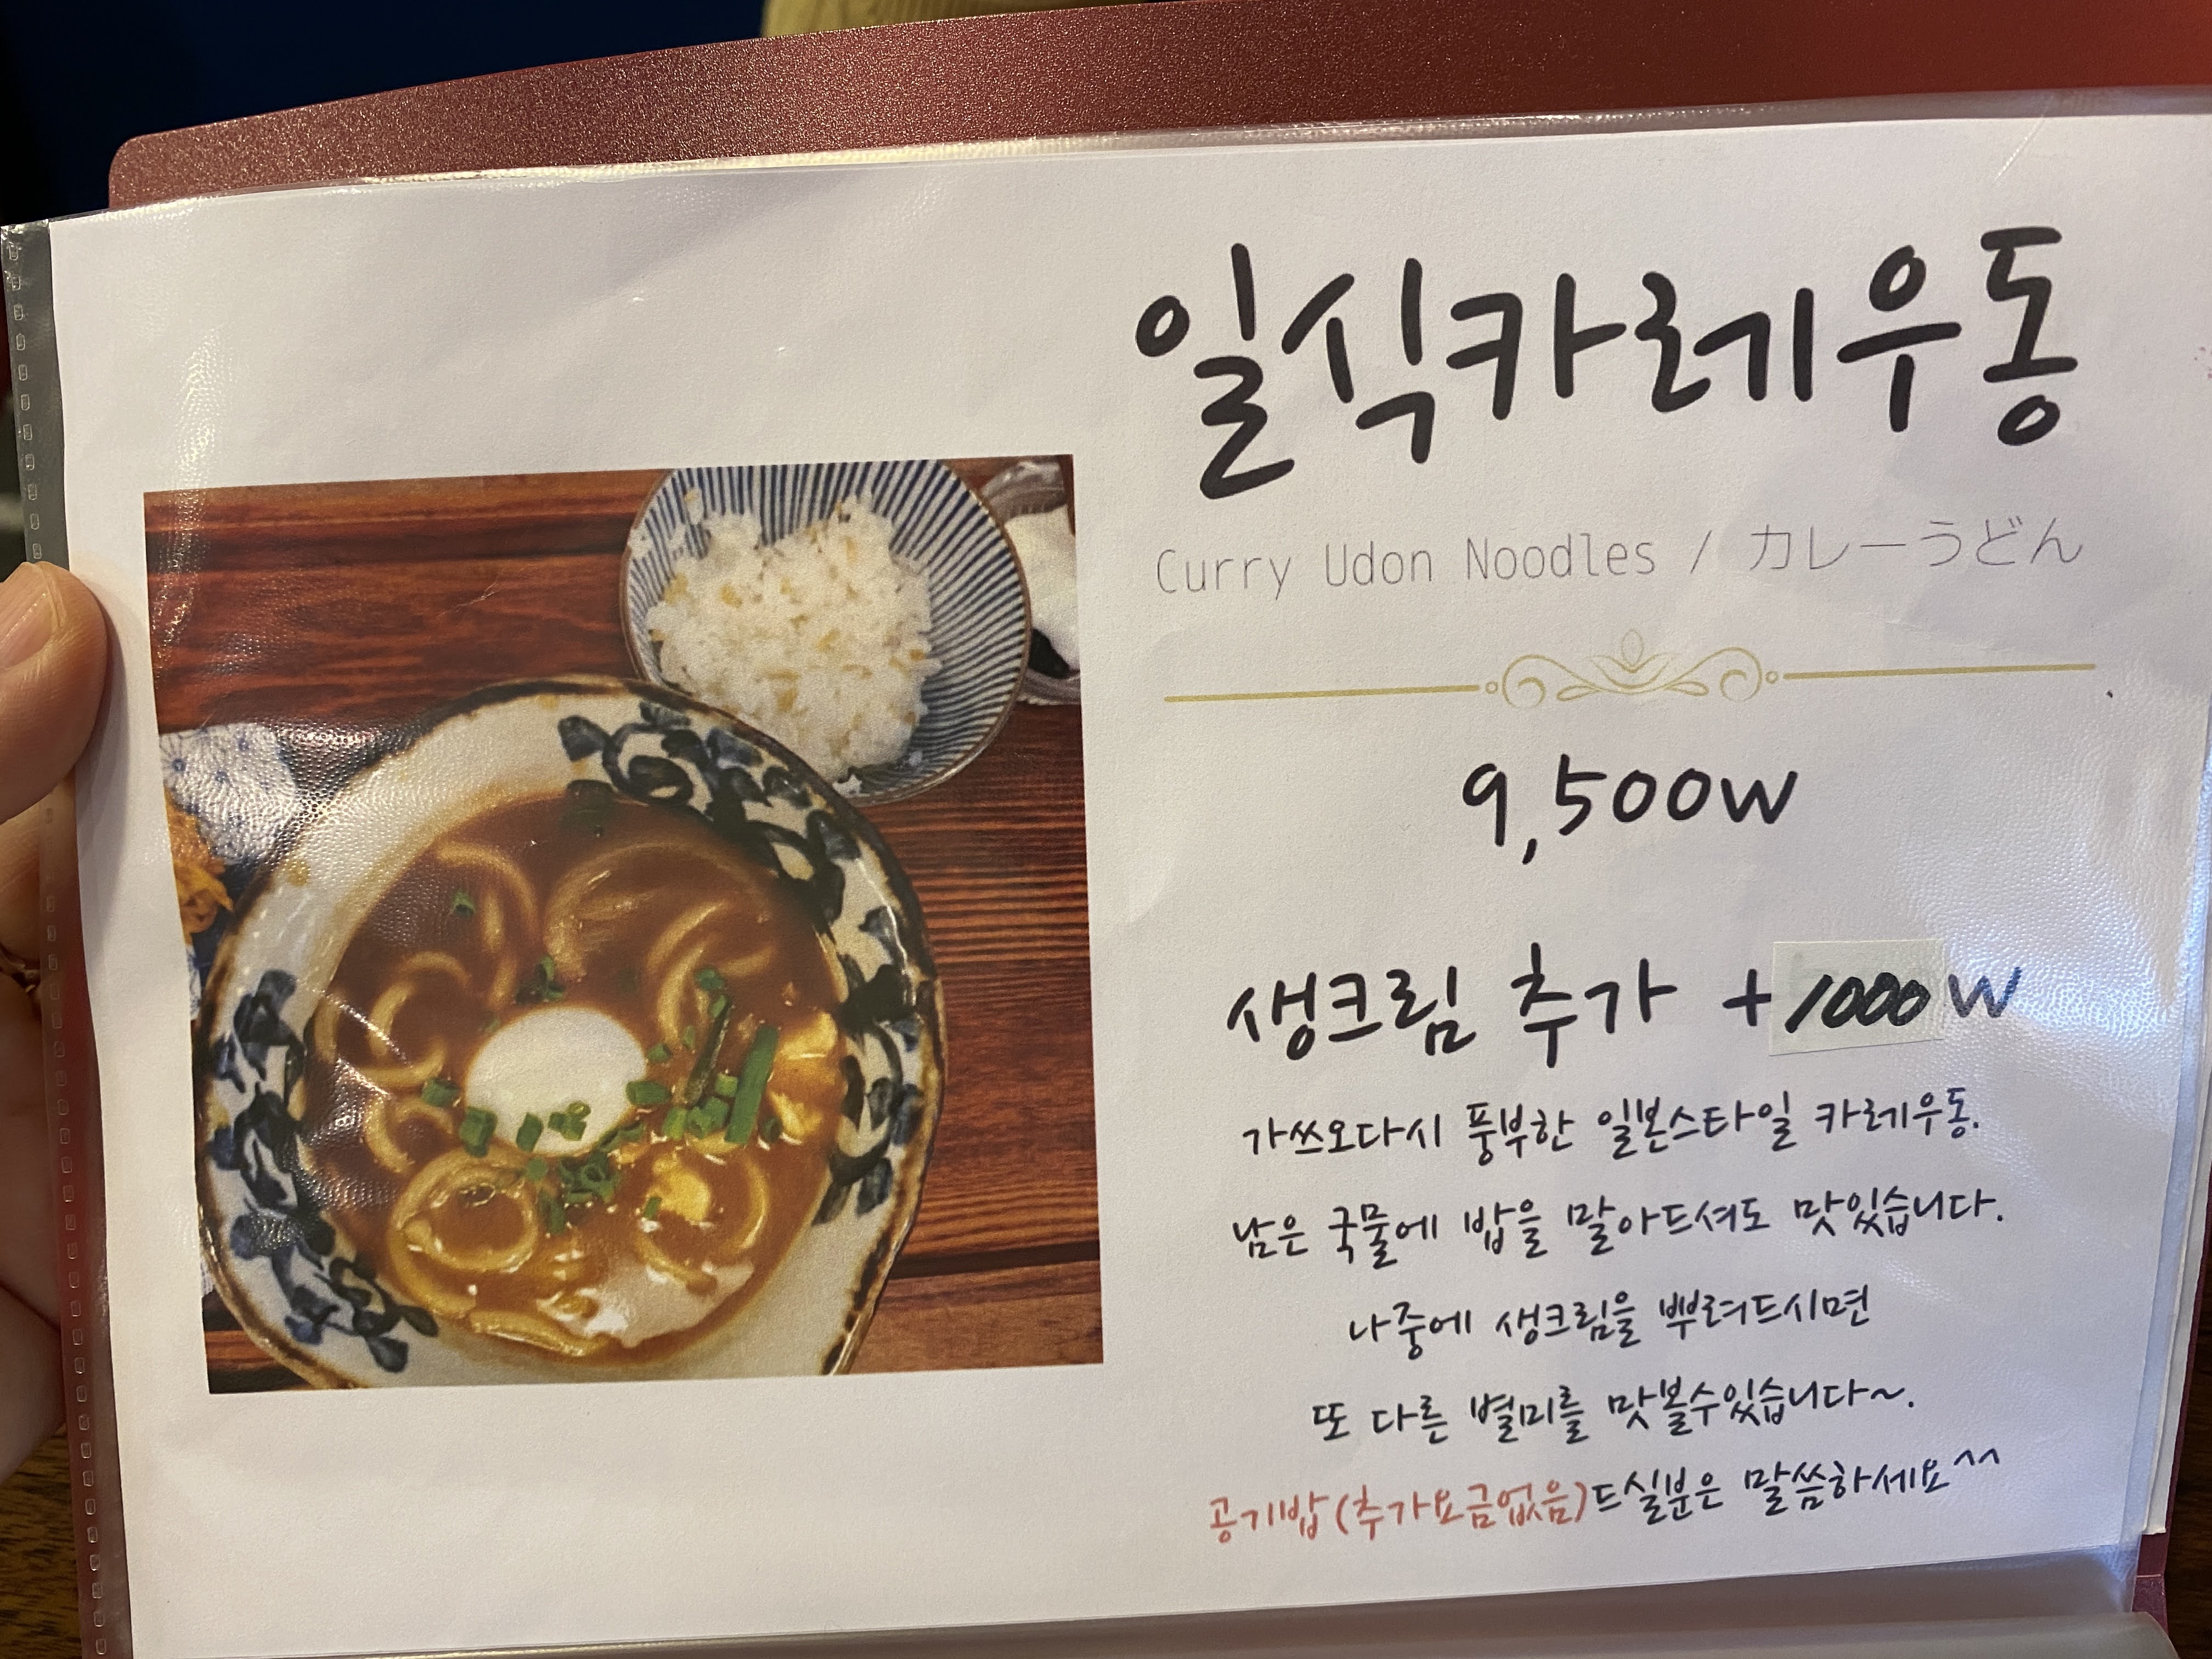 일식카레우동
Curry Udon Noodles / カレーうどん
9,500W
생크림 추가 +1000W
가쓰오다시 풍부한 일본스타일 카레우동.
남은 국물에 밥을 말아드셔도 맛있습니다.
나중에 생크림을 뿌려드시면
또 다른 별미를 맛볼수있습니다~.
공기밥(추가요금없음)드실분은 말씀하세요^^